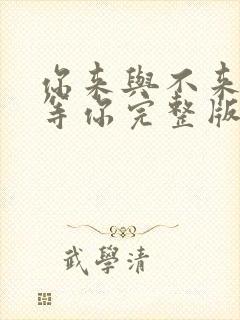 你来與不来
等你完整版
武學清